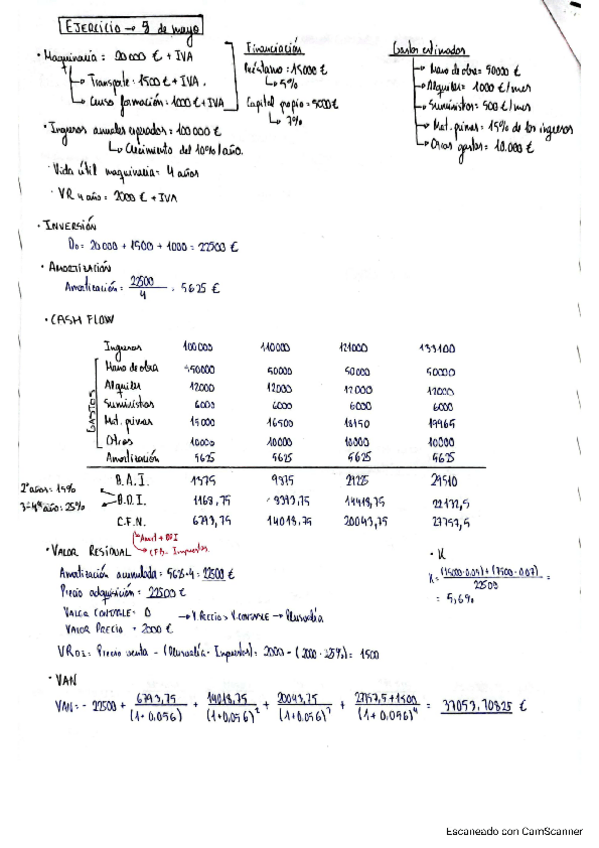 EJERCICIO → 9 de mayo
· Maquinaria = 20000 € + IVA
→ Transporte = 1500 € + IVA.
→ Curso formación = 1000 € + IVA
Financiación
Préstamo = 15000 €
↳ 5%
Capital propio = 5000 €
↳ 7%
Gastos estimados
→ Mano de obra = 50000 €
→ Alquiler = 1000 €/mes
→ Suministros = 500 €/mes
→ Mat. primas = 15% de los ingresos
→ Otros gastos = 10.000 €
· Ingresos anuales esperados = 100000 €
↳ Crecimiento del 10%/año.
· Vida útil maquinaria = 4 años
· VR 4 año = 2000 € + IVA
· INVERSIÓN
D0 = 20000 + 1500 + 1000 = 22500 €
· AMORTIZACIÓN
Amortización = 22500 / 4 = 5625 €
· CASH FLOW
Ingresos 100000 110000 121000 133100
GASTOS
Mano de obra 50000 50000 50000 50000
Alquiler 12000 12000 12000 12000
Suministros 6000 6000 6000 6000
Mat. primas 15000 16500 18150 19965
Otros 10000 10000 10000 10000
Amortización 5625 5625 5625 5625
B.A.I. 1375 9875 29510
2 años = 15%
3º-4º año = 25%
B.D.I. 1168,75 14418,75 22132,5
C.F.N. 6793,75 14018,75 20043,75 27757,5
↳ Amort + BDI
↳ CFB - Impuestos
· VALOR RESIDUAL
Amortización acumulada = 5625 · 4 = 22500 €
Precio adquisición = 22500 €
VALOR CONTABLE = 0
→ V. Precio > V. CONTABLE → Plusvalía
VALOR PRECIO = 2000 €
VRDI = Precio venta - (Plusvalía · Impuestos) = 2000 - (2000 · 25%) = 1500
· K
K = (15000·0.05) + (7500·0.07) / 22500 =
= 5,6%
· VAN
VAN = - 22500 + 6793,75 / (1+0,056) + 14018,75 / (1+0,056)² + 20043,75 / (1+0,056)³ + 27757,5+1500 / (1+0,056)⁴ = 37053,70825 €
Escaneado con CamScanner